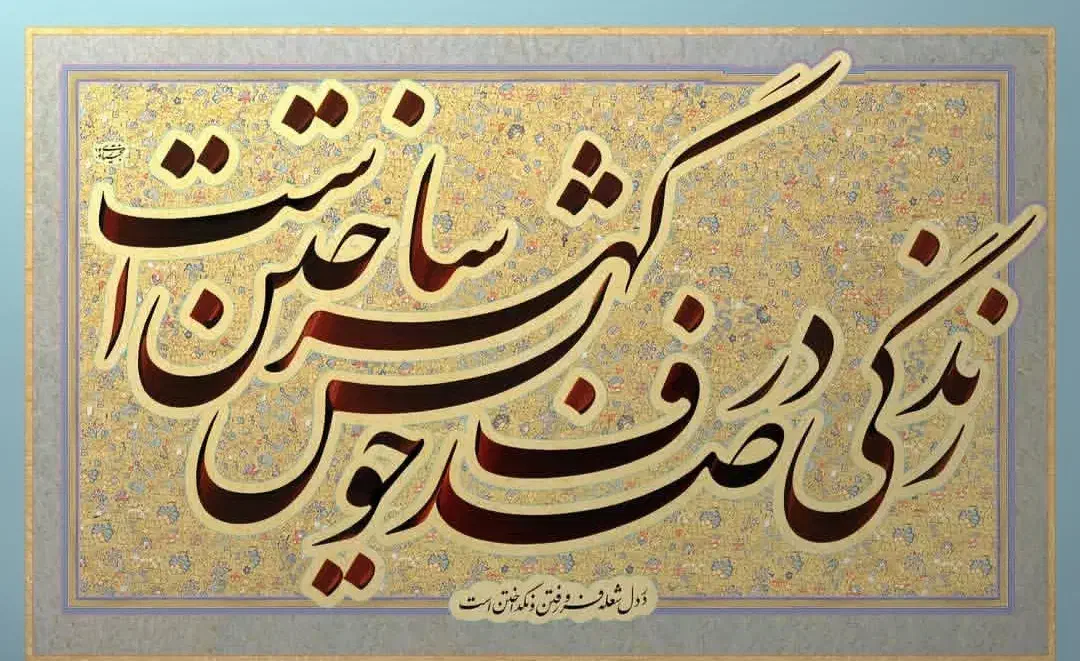 زندگی در صدف خویش گهر ساختن است
در دل شعله فرو رفتن و نگداختن است